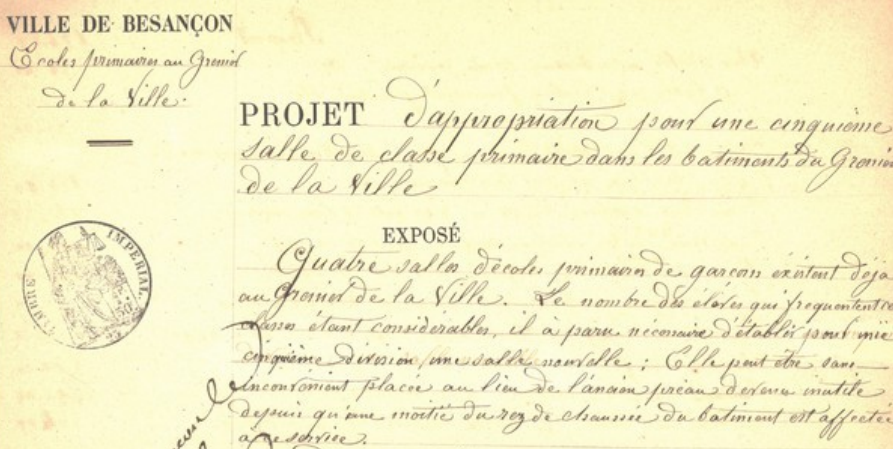 VILLE DE BESANÇON
Ecoles primaires au Grenier
de la Ville.
TIMBRE IMPERIAL.
PROJET d'appropriation pour une cinquième
salle de classe primaire dans les batiments du Grenier
de la Ville
EXPOSÉ
Quatre salles d'écoles primaires de garçons existent déja
au Grenier de la Ville. Le nombre des élèves qui frequentent ces
classes étant considérables, il à paru nécessaire d'établir pour une
cinquième division une salle nouvelle ; Elle peut être sans
inconvénient placée au lieu de l'ancien préau devenu inutile
depuis qu'une moitié du rez de chaussée du batiment est affectée
à ce service.